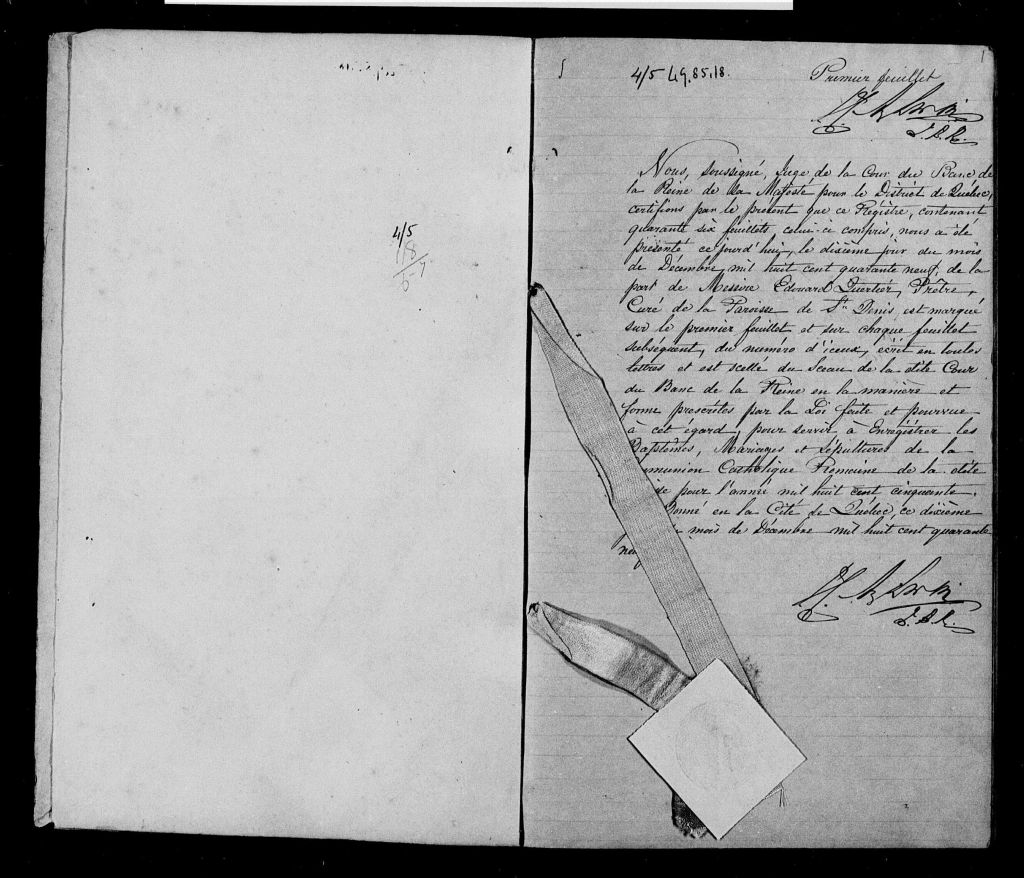 4/5
18
4/5 49.85.18.
1
Premier feuillet
J.B.R.
Nous, soussigné, Juge de la Cour du Banc de
la Reine de Sa Majesté pour le District de Québec,
certifions par le présent que ce Régistre, contenant
quarante six feuillets celui-ci compris, nous a été
présenté ce jourd'hui, le dixième jour du mois
de Décembre, mil huit cent quarante neuf, de la
part de Messire Edouard Quertier, Prêtre,
Curé de la Paroisse de St. Denis, est marqué
sur le premier feuillet et sur chaque feuillet
subséquent, du numéro d'iceux, écrit en toutes
lettres et est scellé du Sceau de la dite Cour
du Banc de la Reine en la manière et
forme prescrites par la Loi faite et pourvue
à cet égard, pour servir à Enrégistrer les
Baptêmes, Mariages et Sépultures de la
mmunion Catholique Romaine de la dite
se pour l'année mil huit cent cinquante.
Donné en la Cité de Québec, ce dixième
mois de Décembre mil huit cent quarante
neuf
J.B.R.